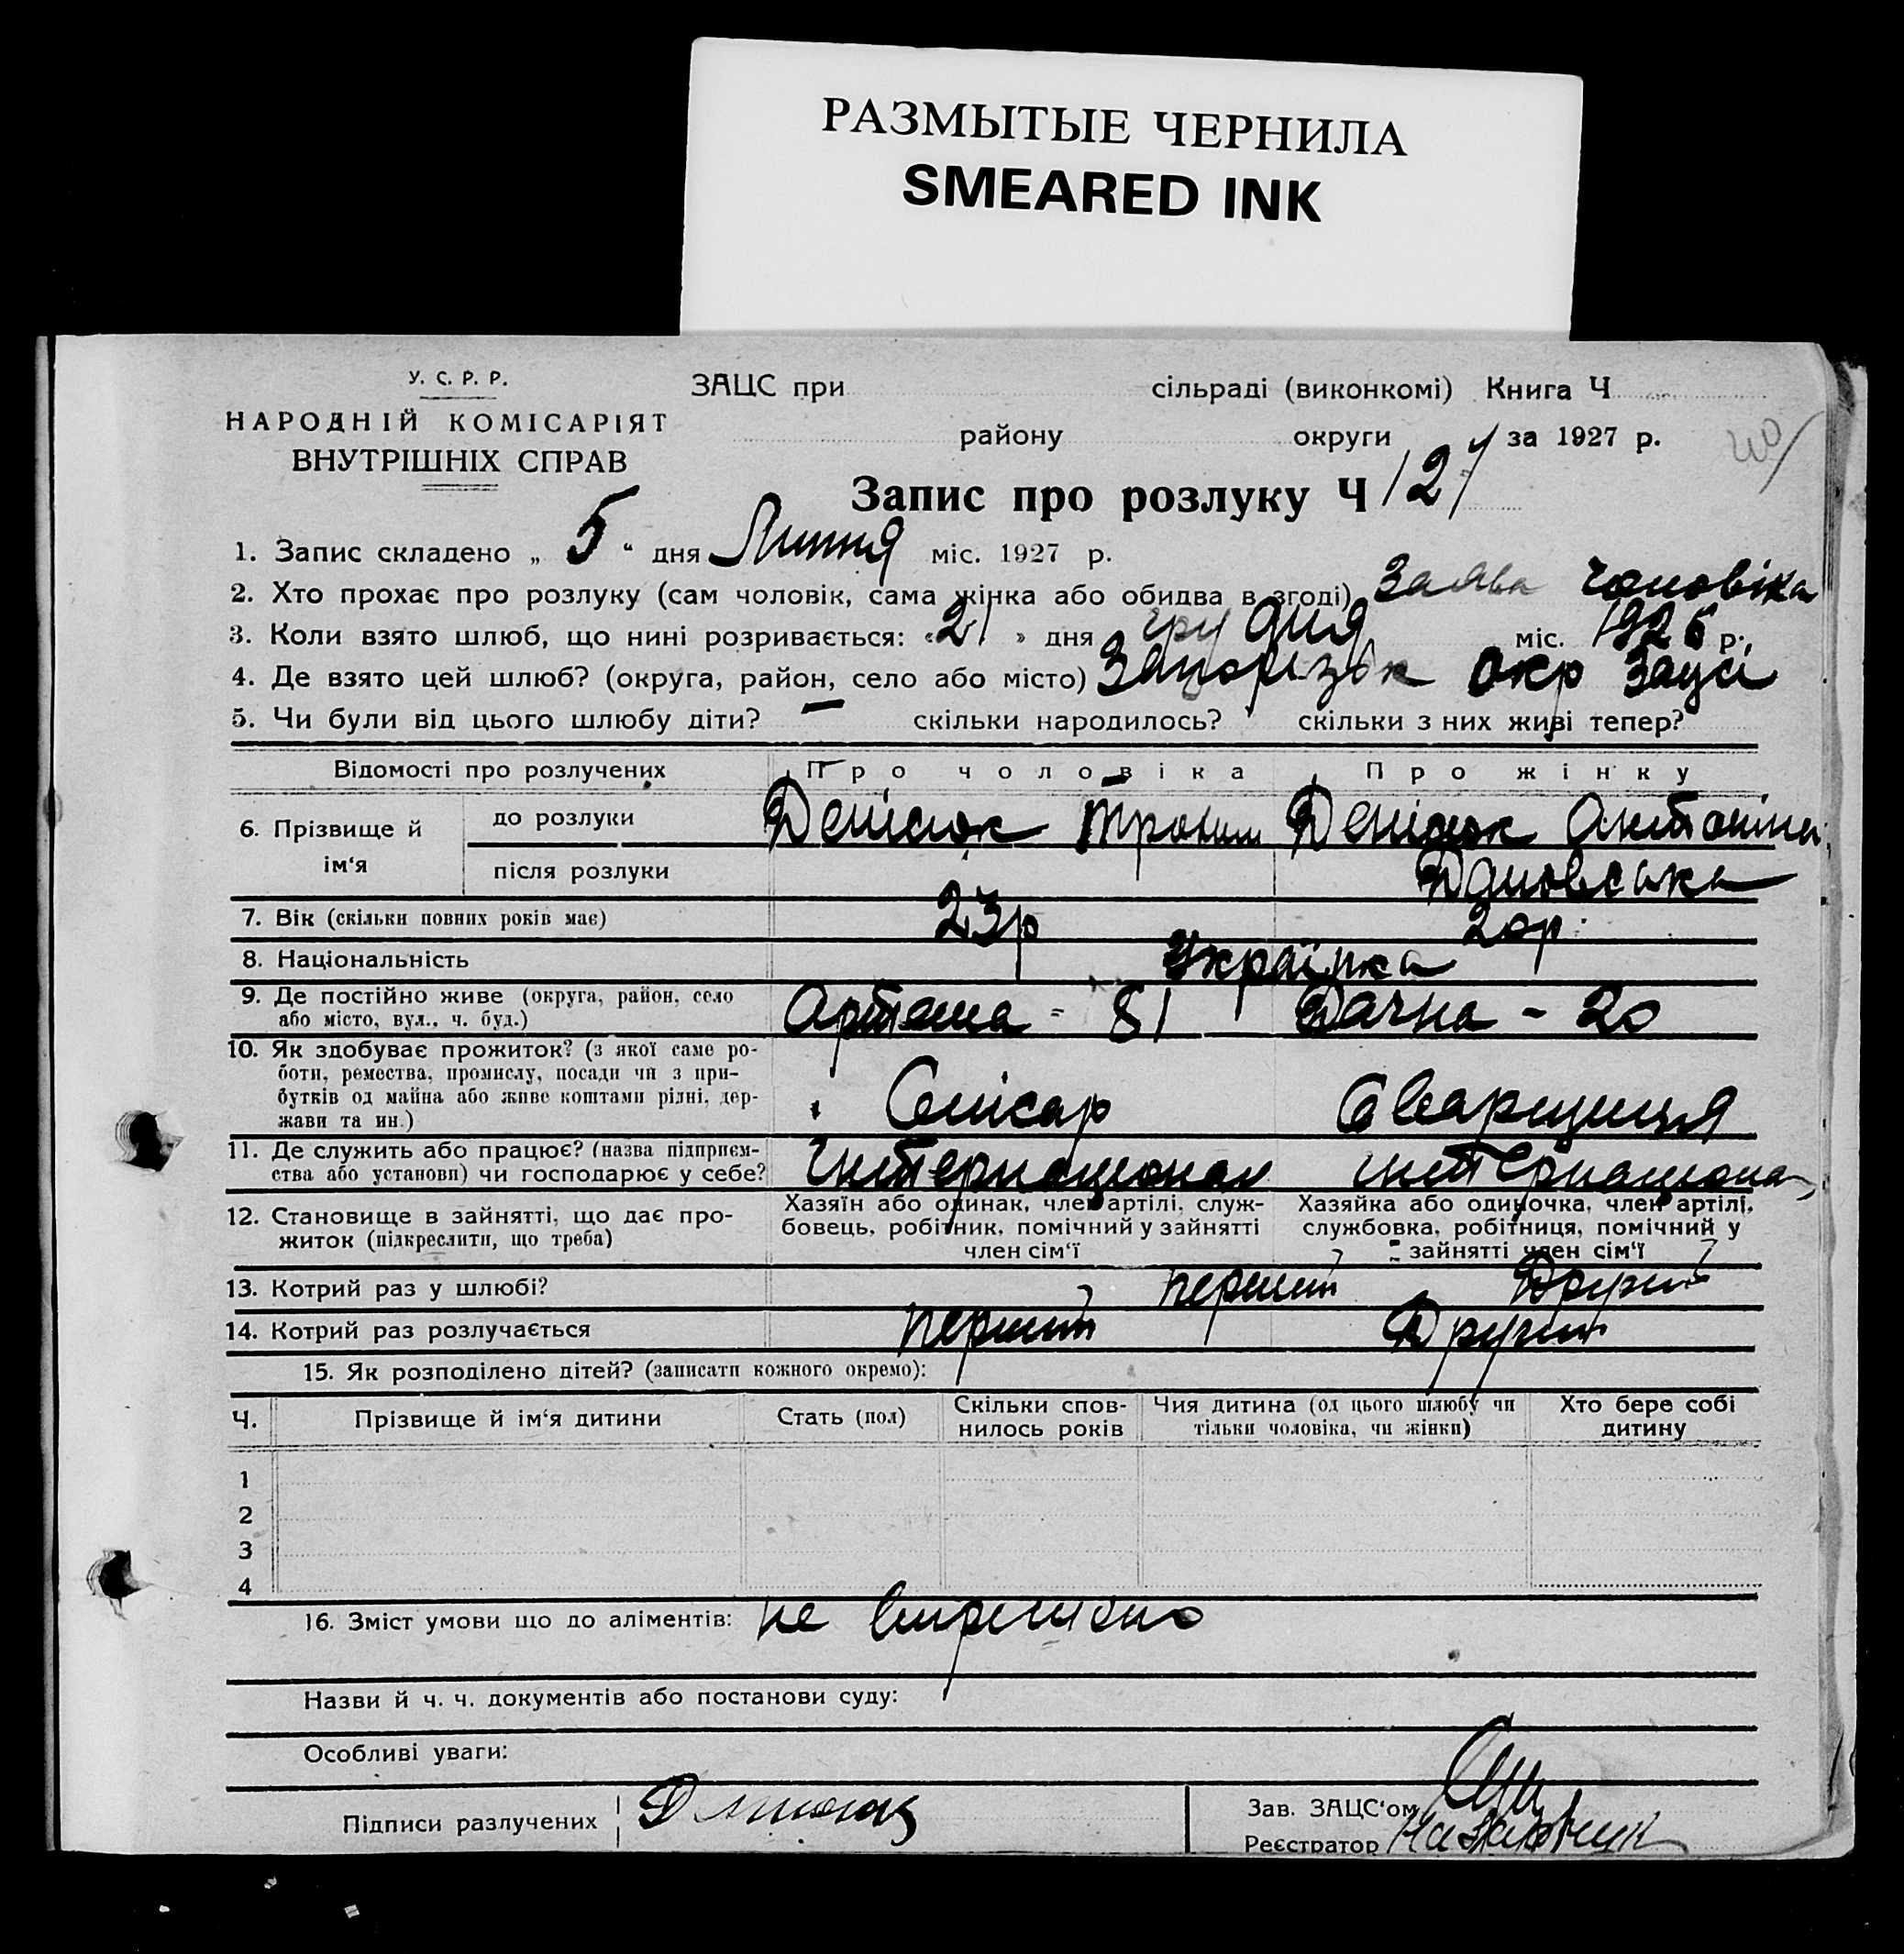 РАЗМЫТЫЕ ЧЕРНИЛА
SMEARED INK
У. С. Р. Р.
НАРОДНІЙ КОМІСАРІЯТ
ВНУТРІШНІХ СПРАВ
ЗАЦС при сільраді (виконкомі) Книга Ч
району округи за 1927 р.
Запис про розлуку Ч 127
1. Запис складено „ 5 “ дня Липня міс. 1927 р.
2. Хто прохає про розлуку (сам чоловік, сама жінка або обидва в згоді) Заява чоловіка
3. Коли взято шлюб, що нині розривається: « 21 » дня грудня міс. 1926 р.
4. Де взято цей шлюб? (округа, район, село або місто) Запорізьк Окр Зацсі
5. Чи були від цього шлюбу діти? — скільки народилось? скільки з них живі тепер?
Відомості про розлучених Про чоловіка Про жінку
6. Прізвище й ім‘я
до розлуки Денісюк Трохим Денісюк Антоніна
після розлуки
7. Вік (скільки повних років має) 23р 20р.
8. Національність Українка
9. Де постійно живе (округа, район, село
або місто, вул., ч. буд.) Артема - 81 Дачна - 20
10. Як здобуває прожиток? (з якої саме ро-
боти, ремества, промислу, посади чи з при-
бутків од майна або живе коштами рідні, дер-
жави та ин.) Слісар Сварщиця
11. Де служить або працює? (назва підприєм-
ства або установи) чи господарює у себе? Інтернаціонал інтернаціонал
12. Становище в зайнятті, що дає про-
житок (підкреслити, що треба)
Хазяїн або одинак, член артілі, служ-
бовець, робітник, помічний у зайнятті
член сім‘ї
Хазяйка або одиночка, член артілі,
службовка, робітниця, помічний у
зайнятті член сім‘ї
13. Котрий раз у шлюбі? перший Другий
14. Котрий раз розлучається перший Другий
15. Як розподілено дітей? (записати кожного окремо):
Ч. Прізвище й ім‘я дитини Стать (пол) Скільки спов-
нилось років Чия дитина (од цього шлюбу чи
тільки чоловіка, чи жінки) Хто бере собі
дитину
1
2
3
4
16. Зміст умови що до аліментів: не вирішено
Назви й ч. ч. документів або постанови суду:
Особливі уваги:
Підписи разлучених
Зав. ЗАЦС‘ом
Реєстратор